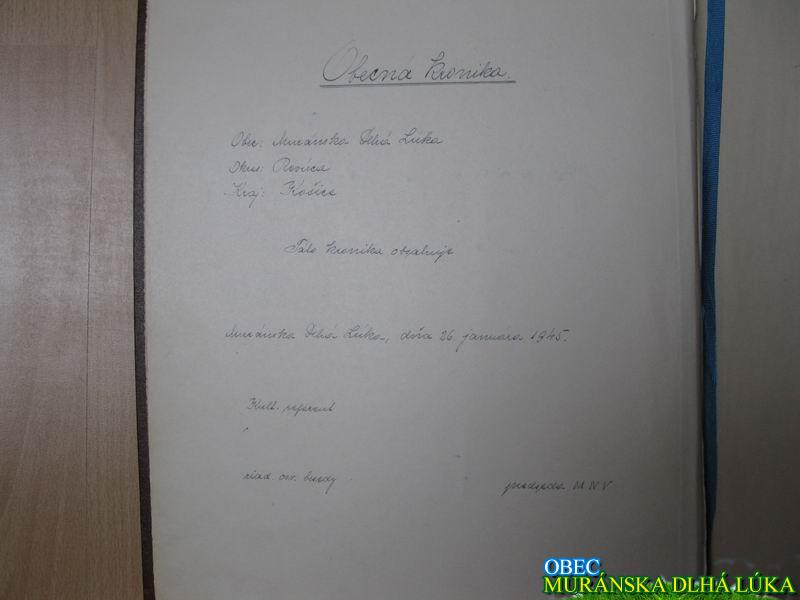 Obecná kronika.
Obec: Muránska Dlhá Lúka
Okres: Revúca
Kraj: Košice
Táto kronika obsahuje
Muránska Dlhá Lúka, dňa 26 januára 1945.
Kult. referent
riad. osv. besedy
predseda M N V
OBEC
MURÁNSKA DLHÁ LÚKA